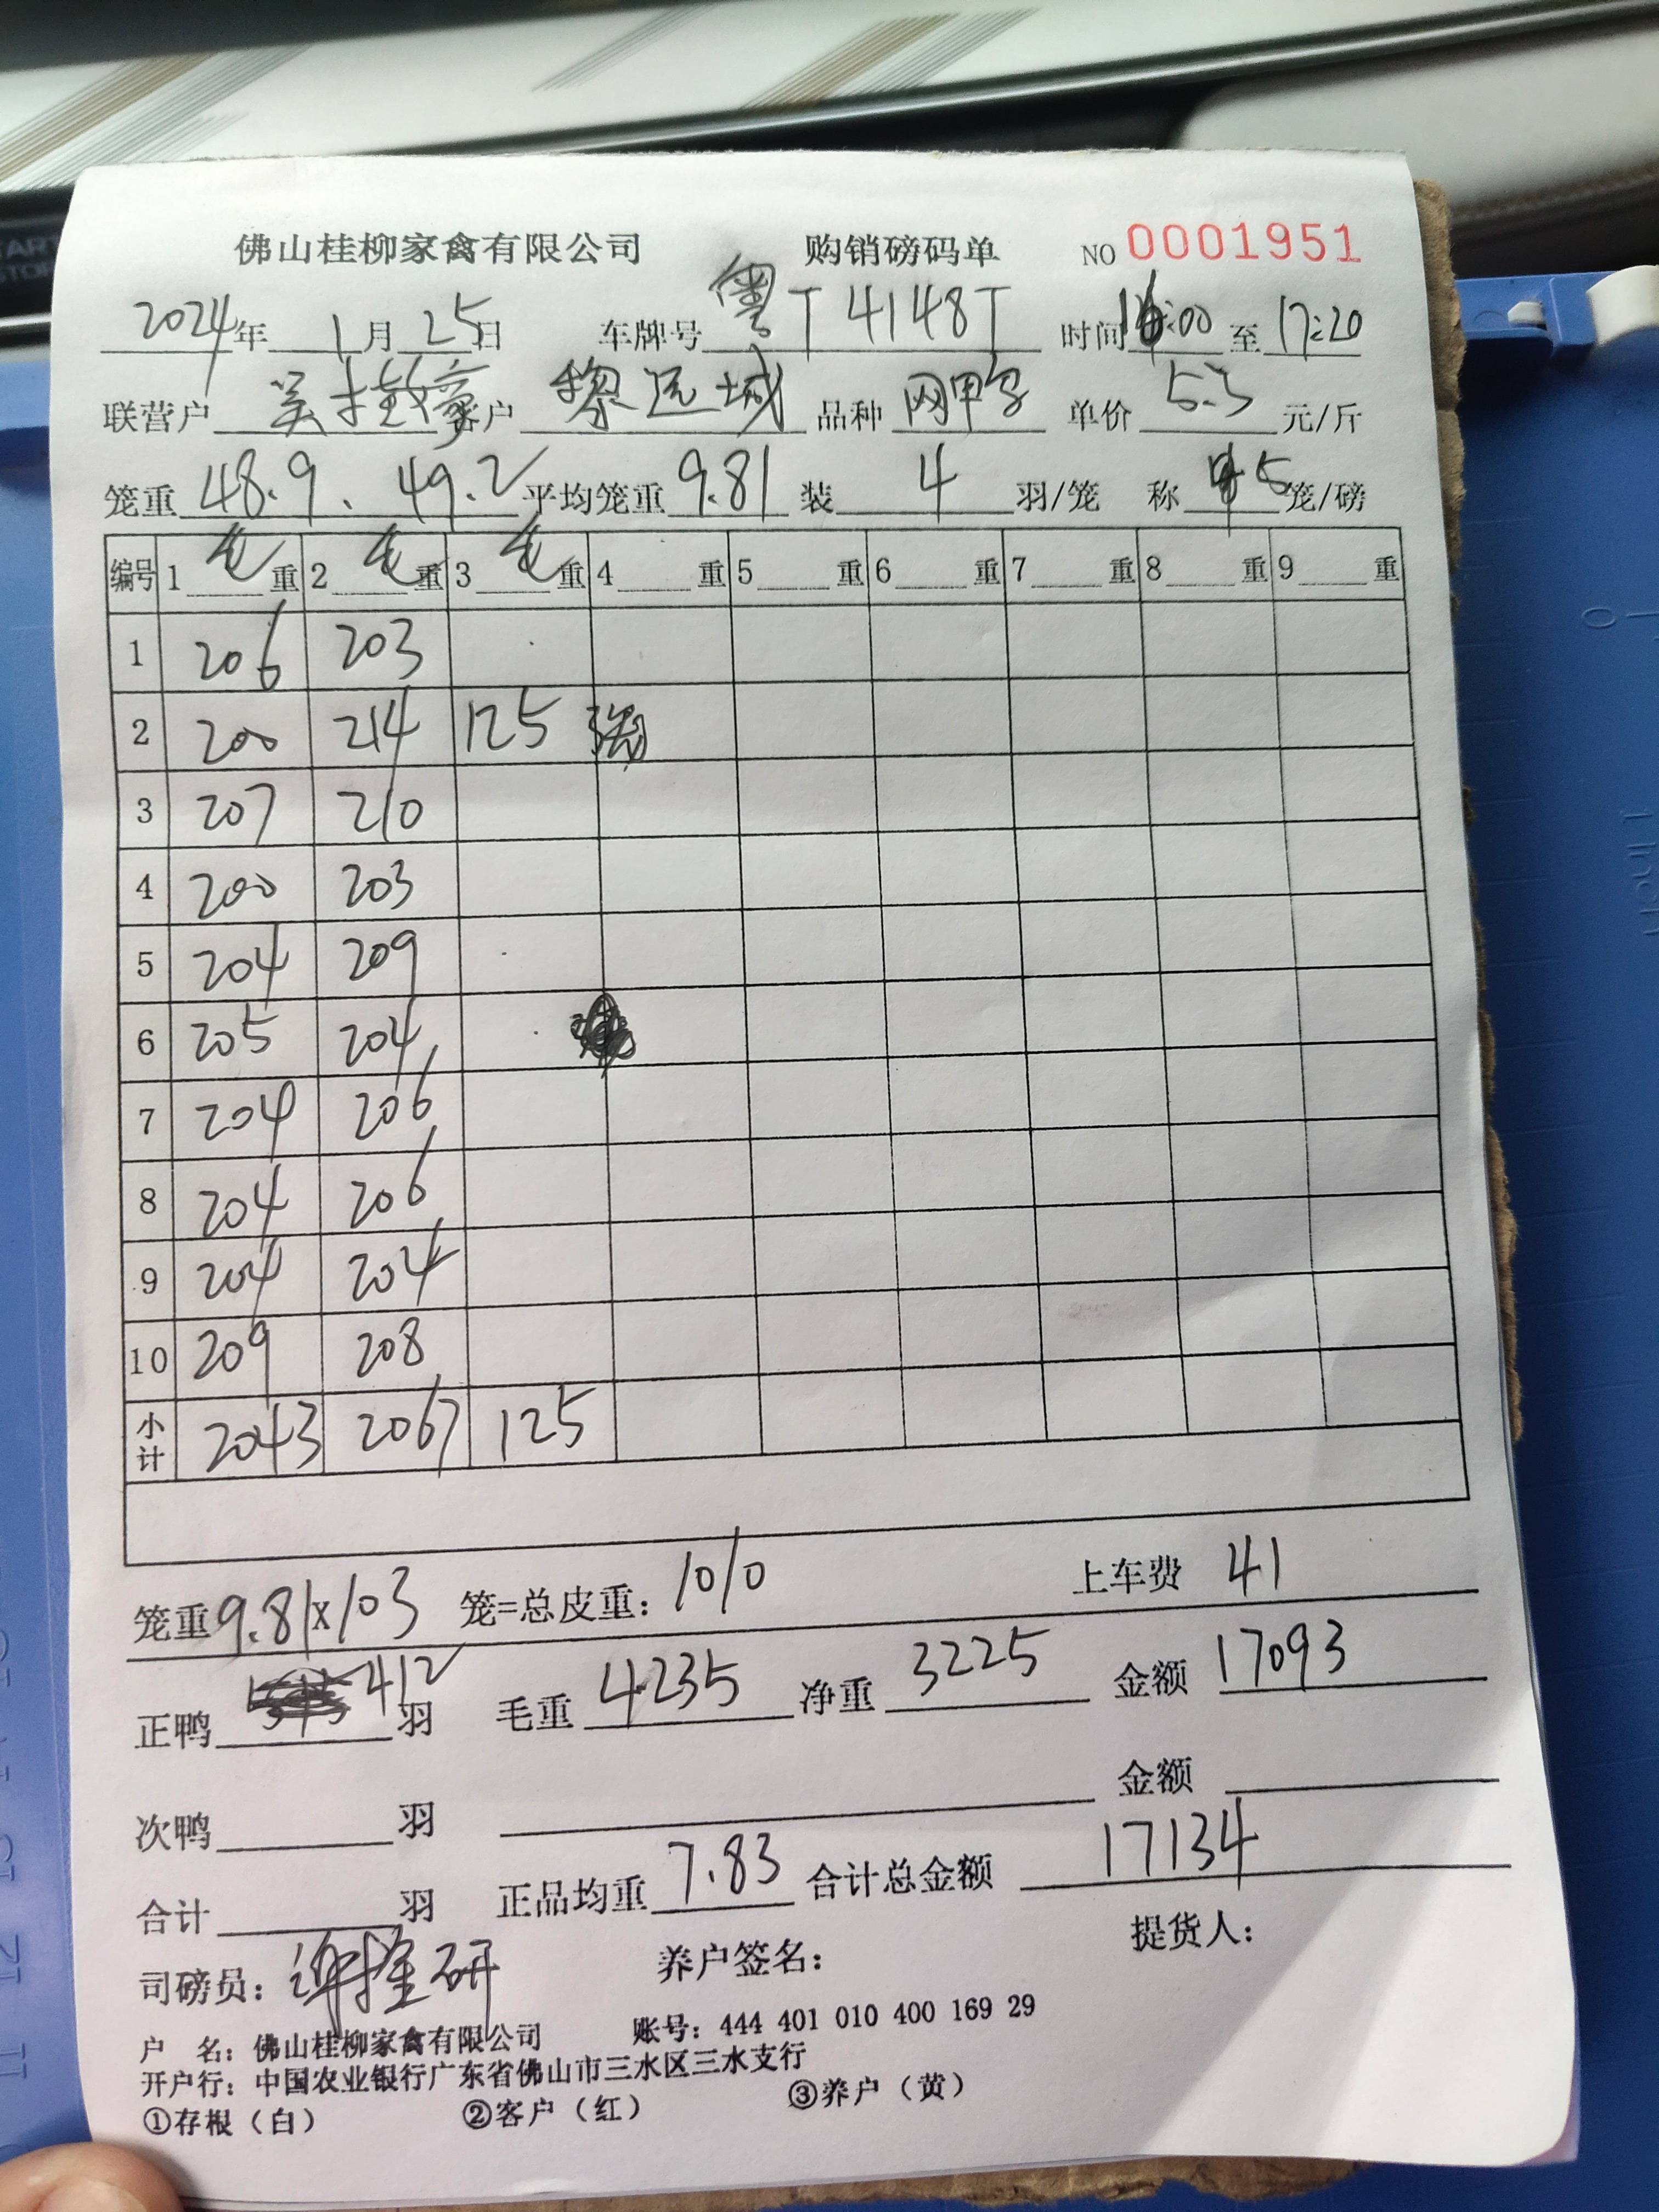 佛山桂柳家禽有限公司 购销磅码单 NO 0001951
2024年 1月 25日 车牌号 粤T4148T 时间 16:00 至 17:20
联营户 吴 客户 黎远城 品种 网甲 单价 5.3 元/斤
笼重 48.9、49.2 平均笼重 9.81 装 4 羽/笼 称 5 笼/磅
编号 1 毛 重 2 毛 重 3 毛 重 4 重 5 重 6 重 7 重 8 重 9 重
1 206 203
2 200 214 125
3 207 210
4 200 203
5 204 209
6 205 204
7 204 206
8 204 206
9 204 204
10 209 208
小计 2043 2067 125
笼重 9.81×103 笼=总皮重: 1010 上车费 41
正鸭 412 羽 毛重 4235 净重 3225 金额 17093
次鸭 羽 金额
合计 羽 正品均重 7.83 合计总金额 17134
司磅员: 研 养户签名: 提货人:
户 名: 佛山桂柳家禽有限公司 账号: 444 401 010 400 169 29
开户行: 中国农业银行广东省佛山市三水区三水支行
①存根（白） ②客户（红） ③养户（黄）